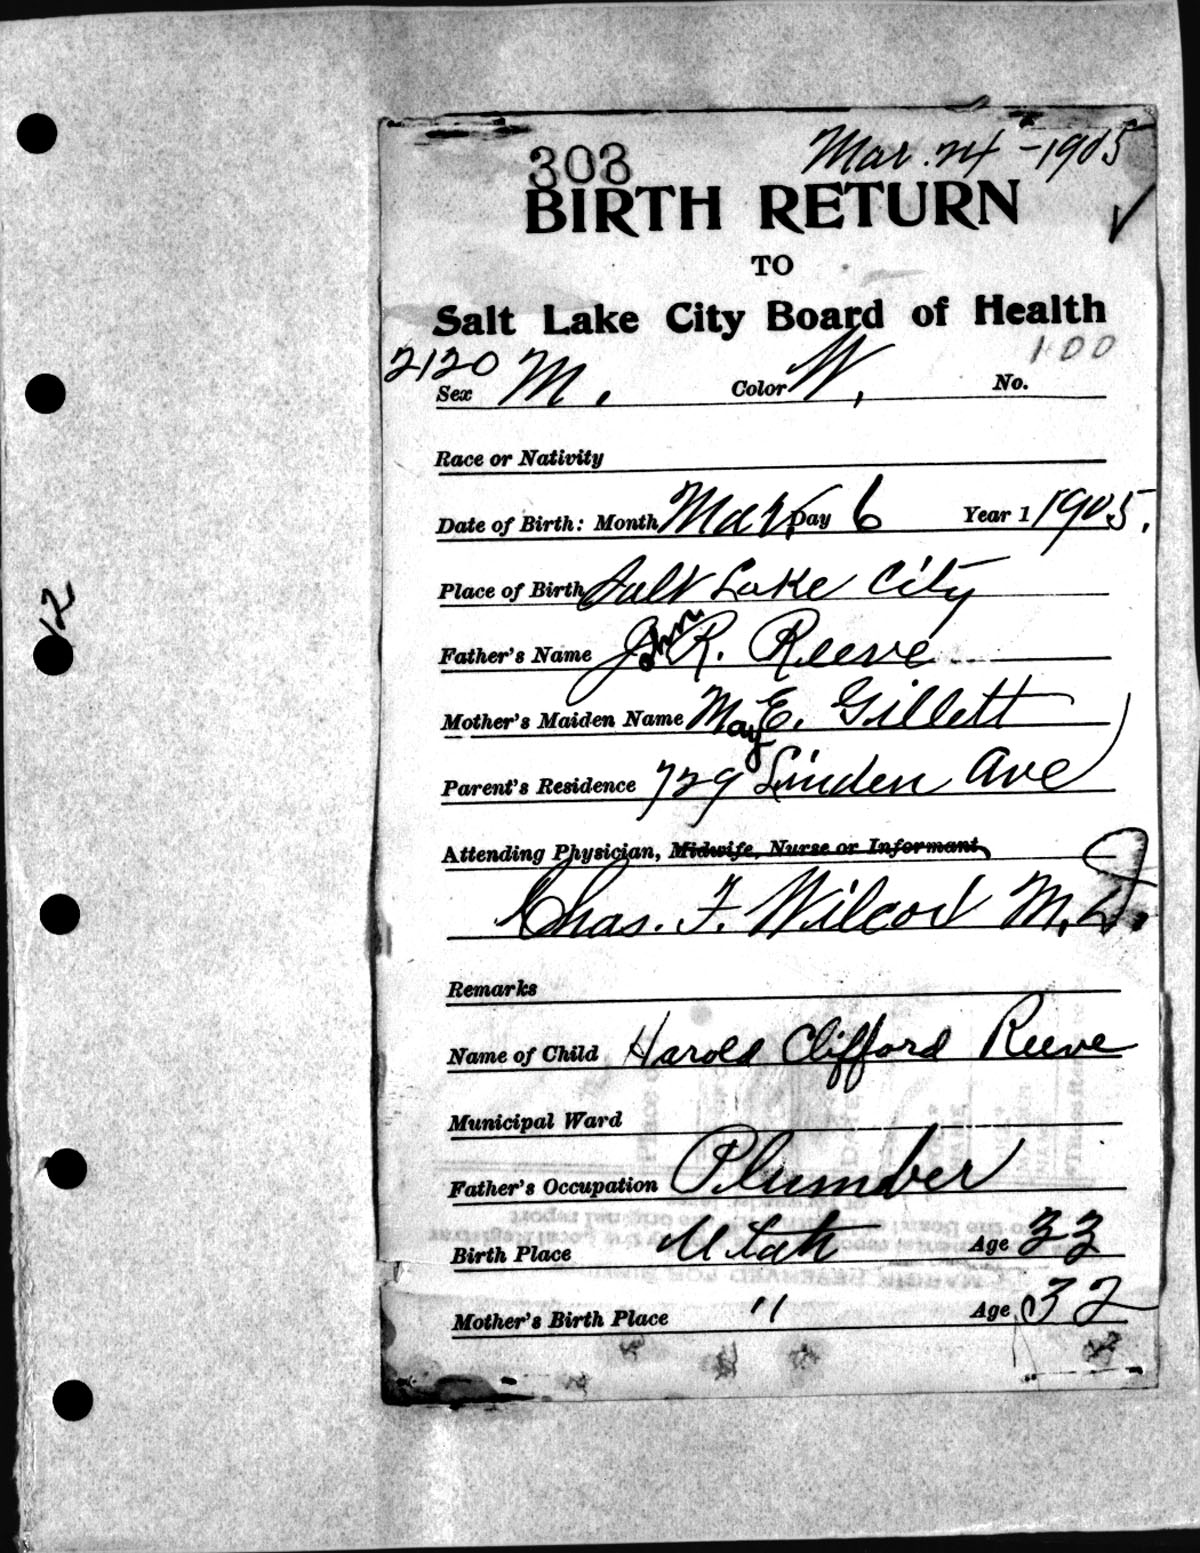 Mar. 24 - 1905
303
BIRTH RETURN
TO
Salt Lake City Board of Health
100
2120
Sex M. Color W. No.
Race or Nativity
Date of Birth: Month Mar. Day 6 Year 1 1905.
Place of Birth Salt Lake City
12
Father's Name John R. Reeve
Mother's Maiden Name May E. Gillett
Parent's Residence 729 Linden Ave
Attending Physician, Midwife, Nurse or Informant
Chas. F. Wilcox M.D.
Remarks
Name of Child Harold Clifford Reeve
Municipal Ward
Father's Occupation Plumber
Birth Place Utah Age 33
Mother's Birth Place " Age 32